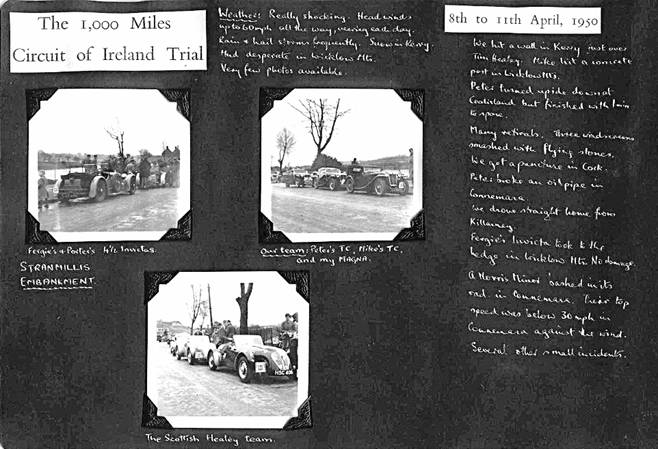 The 1,000 Miles
Circuit of Ireland Trial
Weather: Really shocking. Head winds
up to 60 mph all the way, veering each day.
Rain & hail storms frequently. Snow in Kerry.
Mud desperate in Wicklow Mts.
Very few photos available.
8th to 11th April, 1950
We hit a wall in Kerry just over
Tim Healey. Mike hit a concrete
post in Wicklow Mts.
Peter turned upside down at
but finished with 1 min
to spare.
Many retirals. Three windscreens
smashed with flying stones.
We got a puncture in Cork.
Peter broke an oil pipe in
Connemara.
We drove straight home from
Killarney.
Fergie's Invicta took to the
hedge in Wicklow Mts. No damage.
A Morris Minor bashed in its
rad. in Connemara. Their top
speed was below 30 mph in
Connemara against the wind.
Several other small incidents.
Fergie's & Porter's 4½ Invictas.
STRANMILLIS
EMBANKMENT.
Our team: Peter's TC, Mike's TC,
and my MAGNA.
HSC 406
The Scottish Healey team.